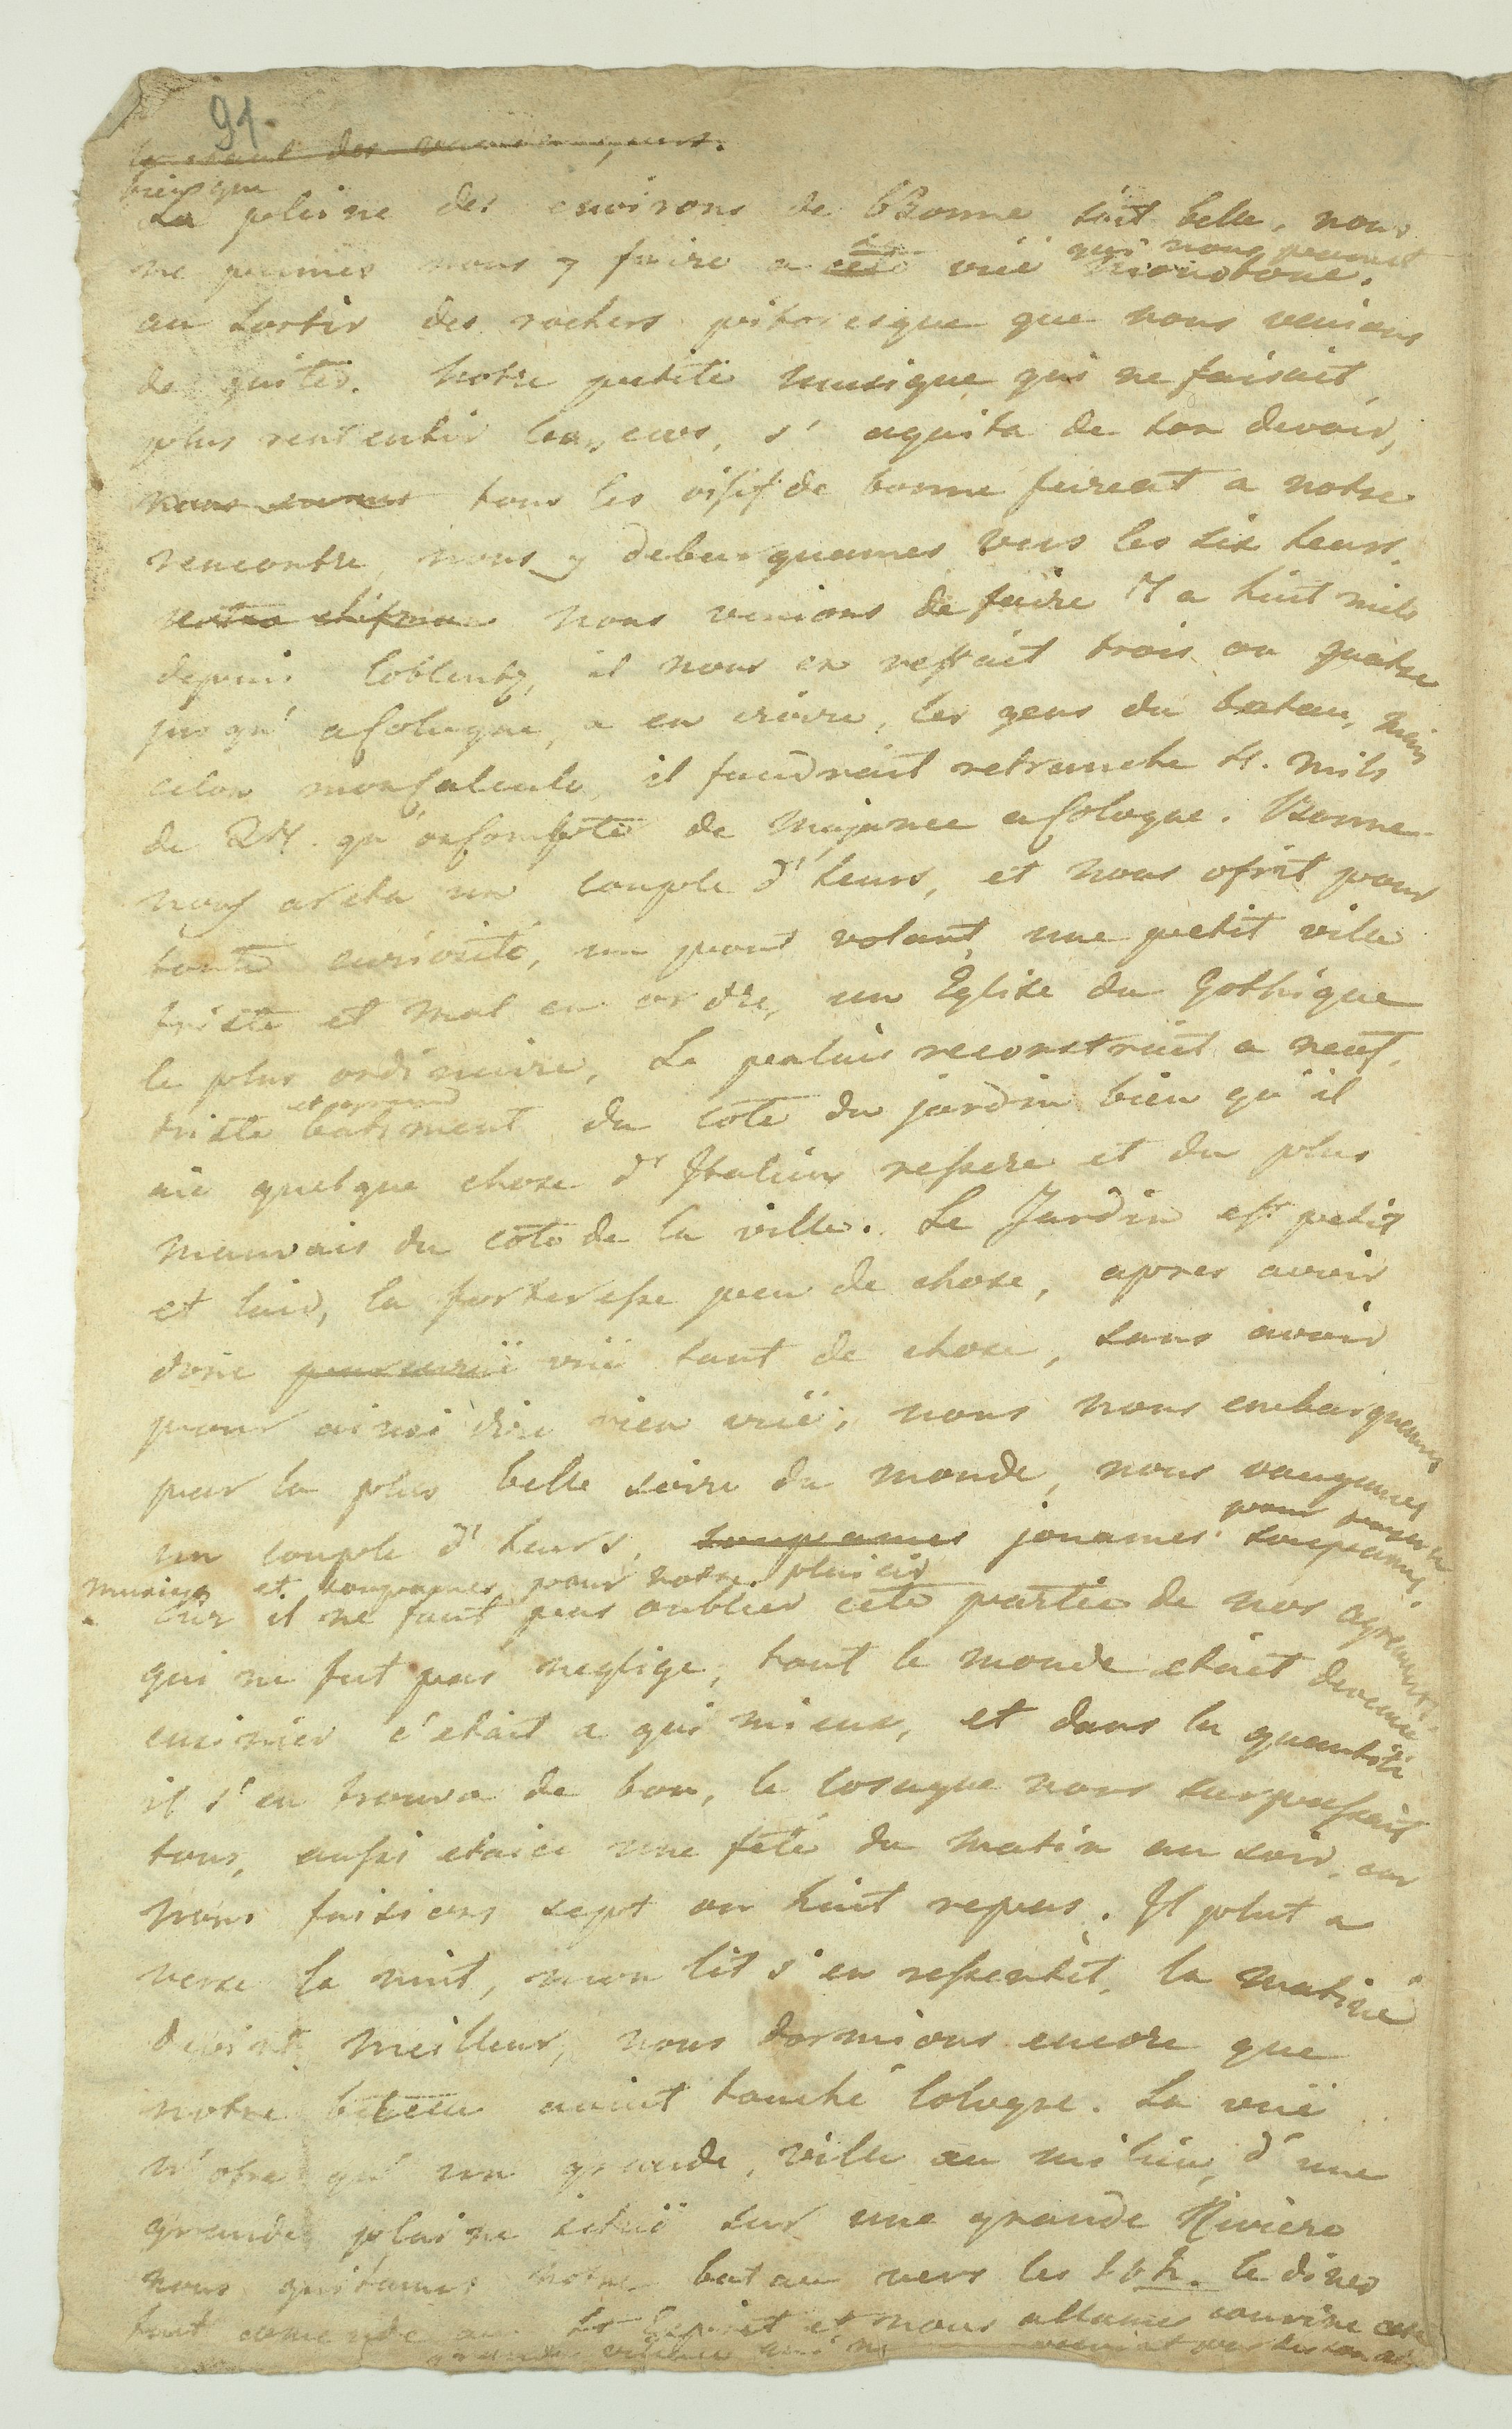 91.
des
bien que
La pleine des environs de Bonne soit belle, nous
ne pumes nous y faire a cete vuë qui nous parut monotone.
au sortir des rochers pitoresque que nous venions
de quiter. Notre petite musique qui ne faisait
plus rentir s'aquita de son devoir,
tous les oisif de bonne furent a notre
rencontre, nous y debarquames vers les six heurs.
nous venions de faire 7 a huit mils
depuis Coblentz, il nous en restait trois ou quatre
jusqu'a Cologne, a en croire, les gens du bateau, mais
celon mon calcule, il faudrait retranche 4. mils
de 24. qu'on compte de Majance a Cologne. Bonne
nous areta un couple d'heurs, et nous ofrit pour
toute curiosité, un pont volant, une petit ville
triste et mal en ordre, un Eglise du Gothique
le plus ordinaire, Le palais reconstruit a neuf,
triste et grand batiment du coté du jardin bien qu'il
aie quelque chose d'Italien ressere et du plus
mauvais du coté de la ville. Le Jardin est petit
et laid, la forteresse peu de chose, apres avoir
donc vuë tant de chose, sans avoir
pour ainsi dire rien vuë, nous nous embarquames
par la plus belle soire du monde, nous vougames
un couple d'heurs, soupames jouames soupames
musique et soupames pour notre plaisir
Car il ne faut pas oublier cete partie de nos agrements
qui ne fut pas neglige, tout le monde etait devenue
cuisinier c'etait a qui mieux, et dans la quantité
il s'en trouva de bon, le cosaque nous surpassait
tous, aussi etaice une fête du matin au soir, car
nous faisions sept ou huit repas. Il plut a
verse la nuit, mon lit s'en ressentit, la matiné
devint meilleur, nous dormions encore que
notre bateau avait touché Cologne. La vuë
n'ofre qu'un grande, ville au milieu, d'une
grande plaine situë sur une grande Riviere
nous quitames notre bateau vers les 10 h. le diner
fut comende au St Esprit et nous allames
grande